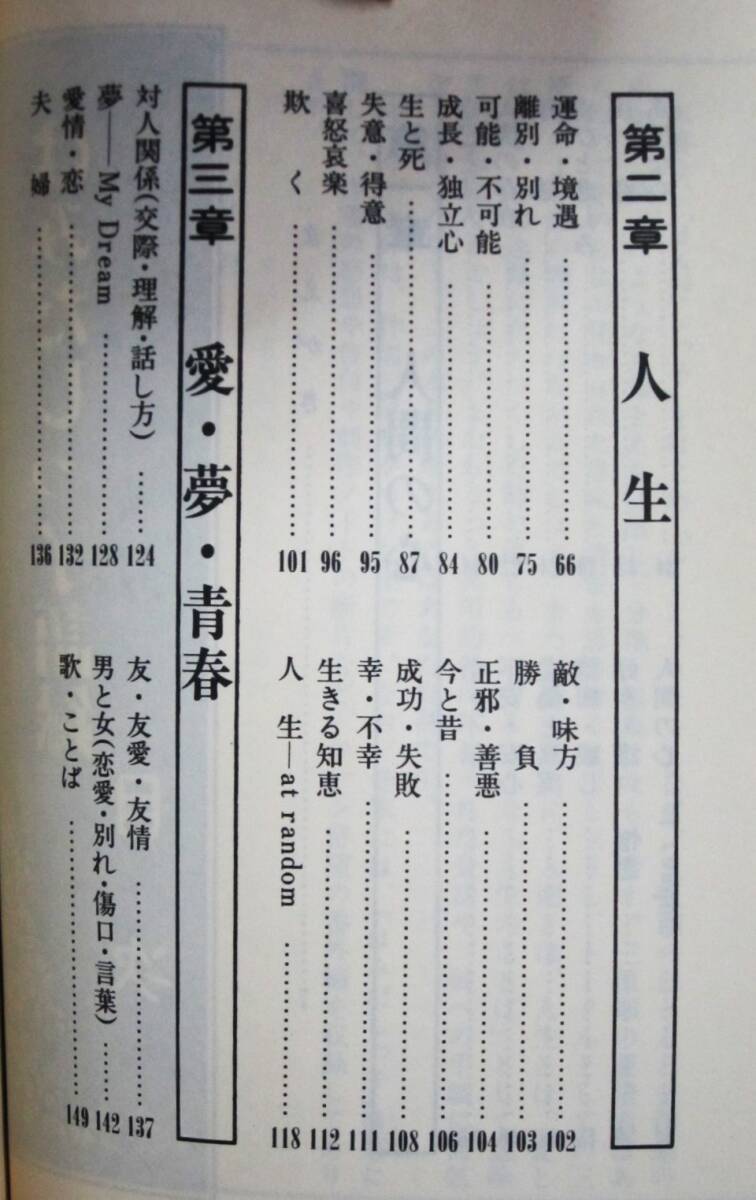 第二章 人生
運命・境遇……66
離別・別れ……75
可能・不可能……80
成長・独立心……84
生と死……87
失意・得意……95
喜怒哀楽……96
欺く……101
敵・味方……102
勝負……103
正邪・善悪……104
今と昔……106
成功・失敗……108
幸・不幸……111
生きる知恵……112
人生—at random……118
第三章 愛・夢・青春
対人関係(交際・理解・話し方)……124
夢—My Dream……128
愛情・恋……132
夫婦……136
友・友愛・友情……137
男と女(恋愛・別れ・傷口・言葉)……142
歌・ことば……149